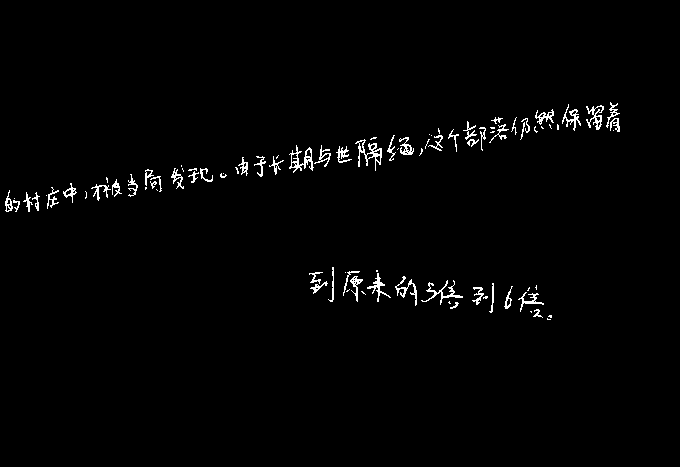 的村庄中,才被当局发现。由于长期与世隔绝,这个部落仍然保留着
到原来的5倍到6倍。